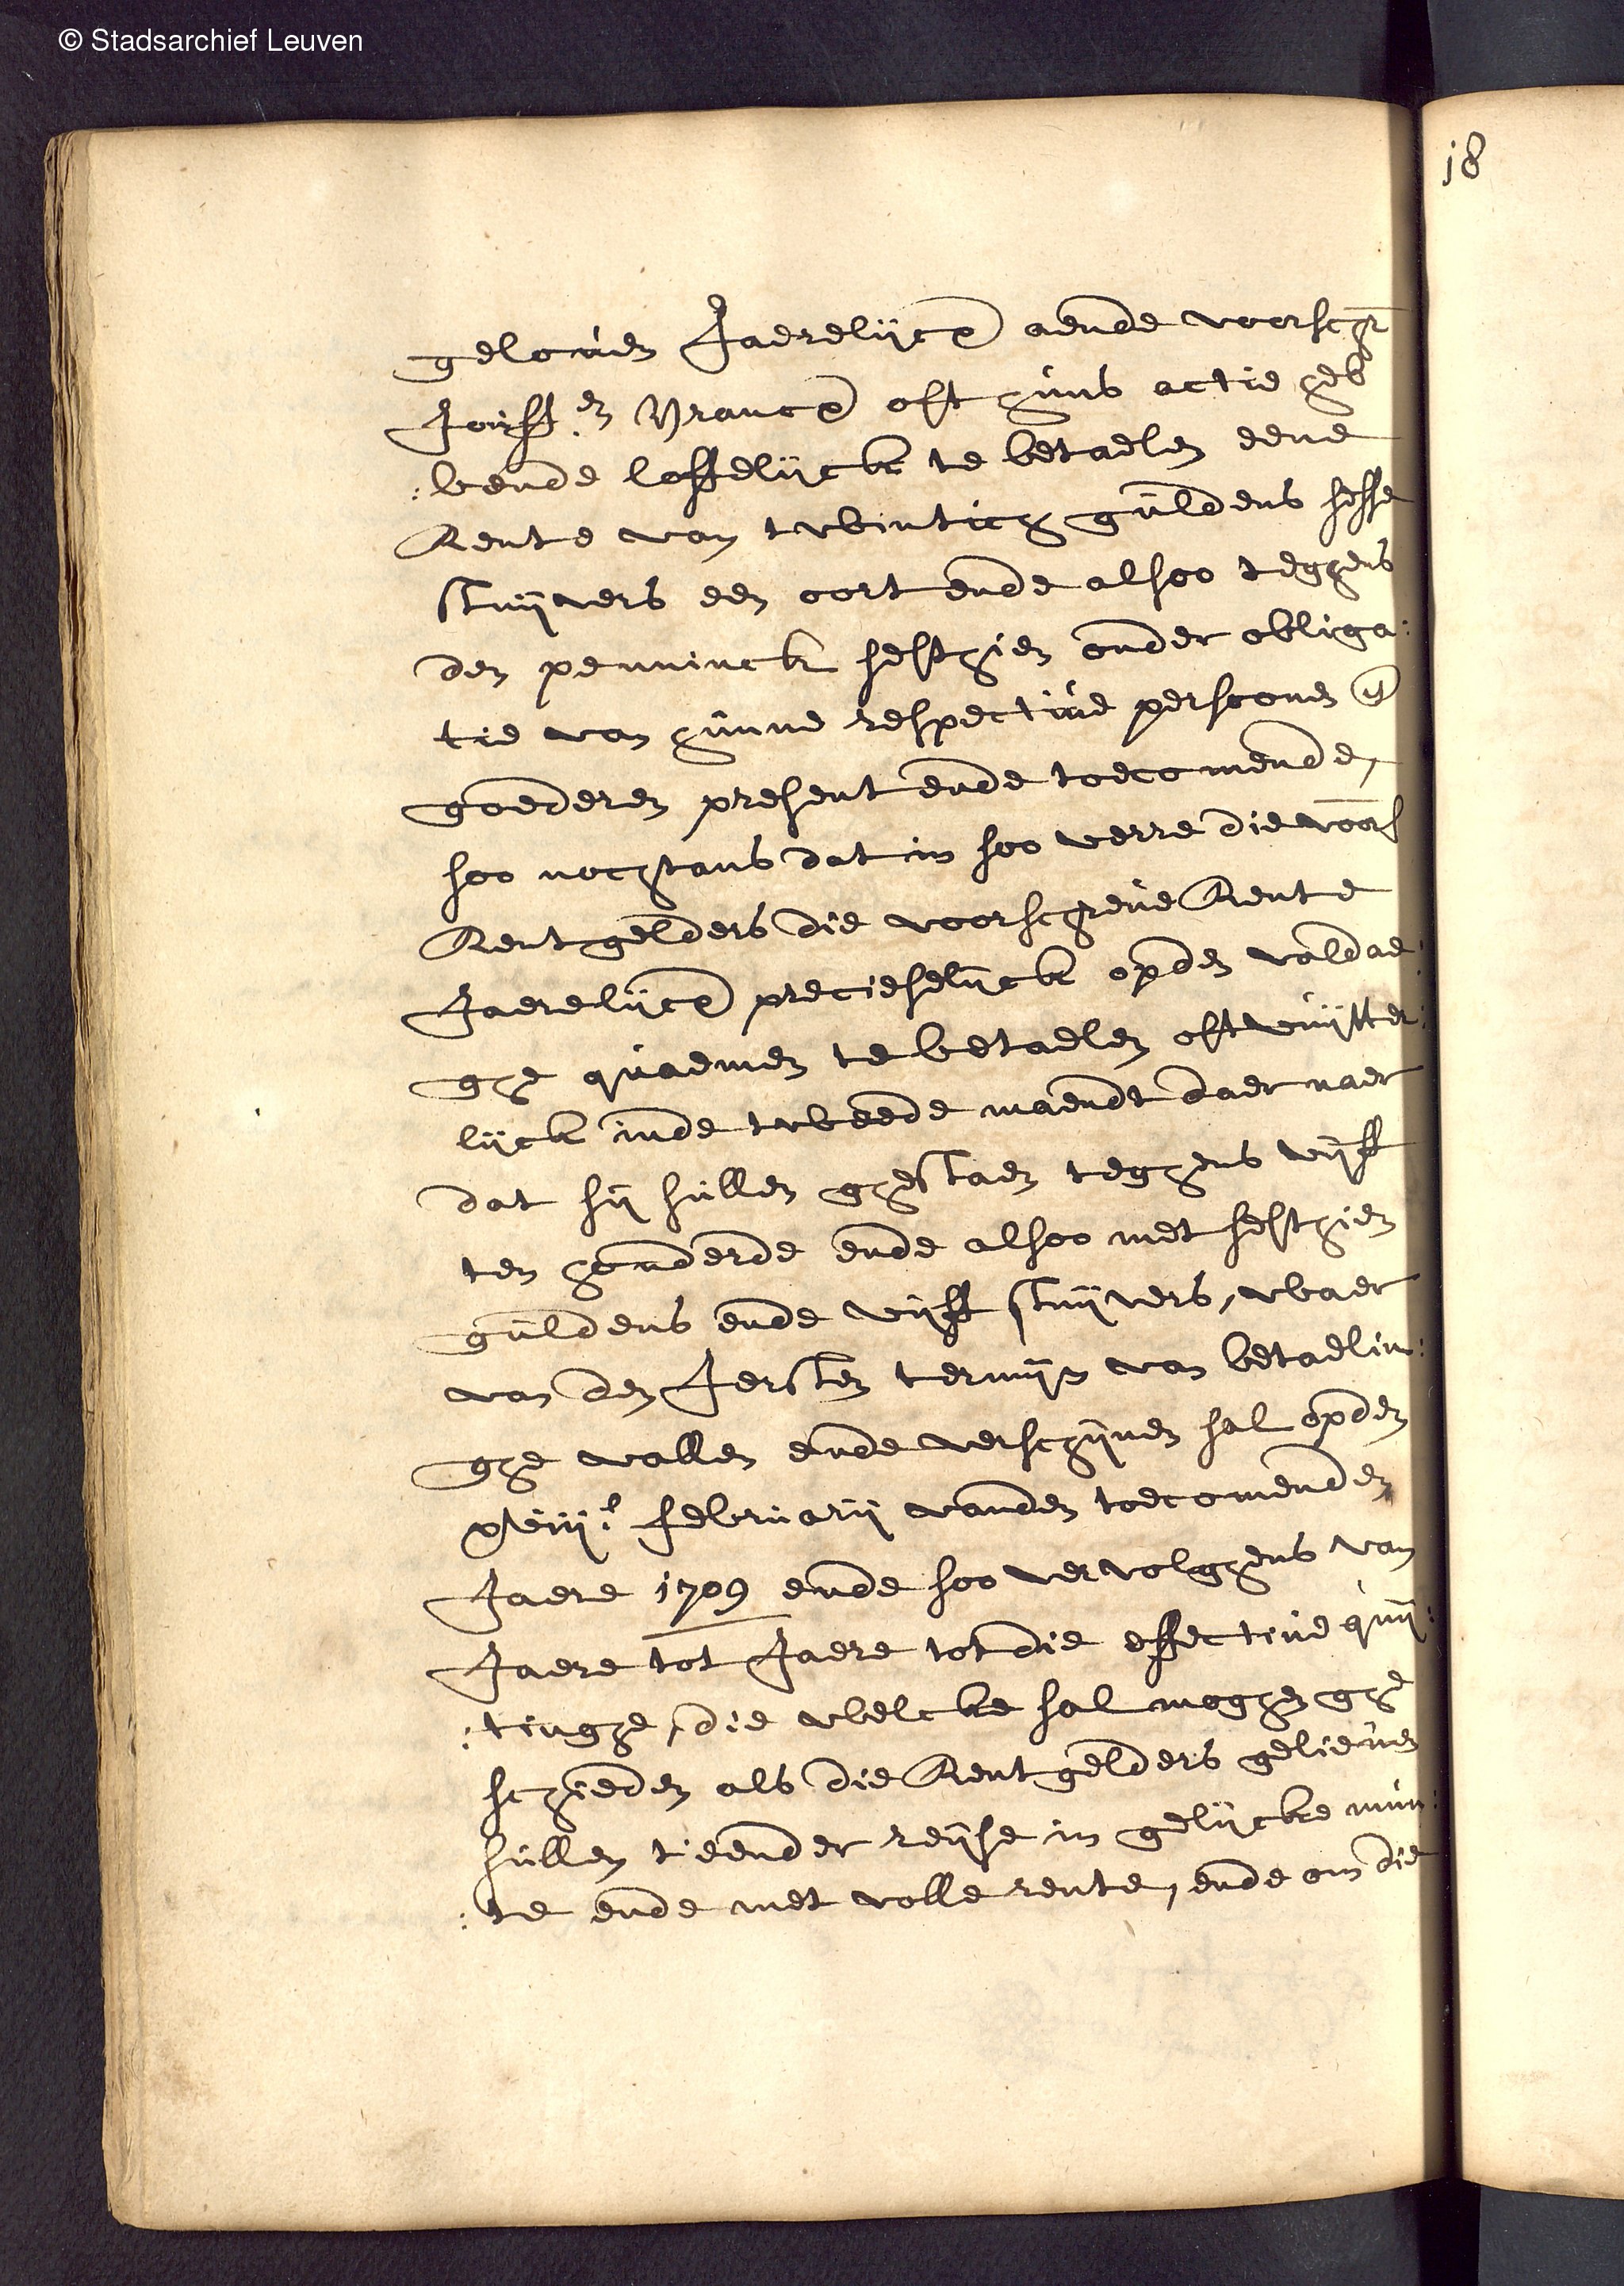 © Stadsarchief Leuven
j8
geloven Jaerelijcx aende voorschr
Jouff.en Vrancx oft huns actie heb
:bende loffelijck te betaelen eene
Rente van twintich guldens sesse
stuijvers een oort ende alsoo teghens
den penninck sesthien onder obliga:
tie van hunne respective persoonen e
goederen present ende toecomende,
soo nochtans dat in soo verre die voors
Rentgelders die voorschreve Rente
Jaerelijcx precieselijck opden valdae:
ghe quaemen te betaelen oft vuijtter:
lijck inde tweede maendt daer naer
dat sij sullen ghestaen teghens vijff
ten honderde ende alsoo met sesthien
guldens ende vijff stuijvers, waer
van den Jersten termijn van betaelin:
ghe vallen ende verschijnen sal opden
februarij vanden toecomenden
Jaere 1709 ende soo vervolghens van
Jaere tot Jaere tot die effective quij:
:tinghe, die welcke sal moghen ghe
schieden als die Rentgelders gelieven
sullen tʼeender reijse in gelijcke mun:
:te ende met volle rente, ende om die